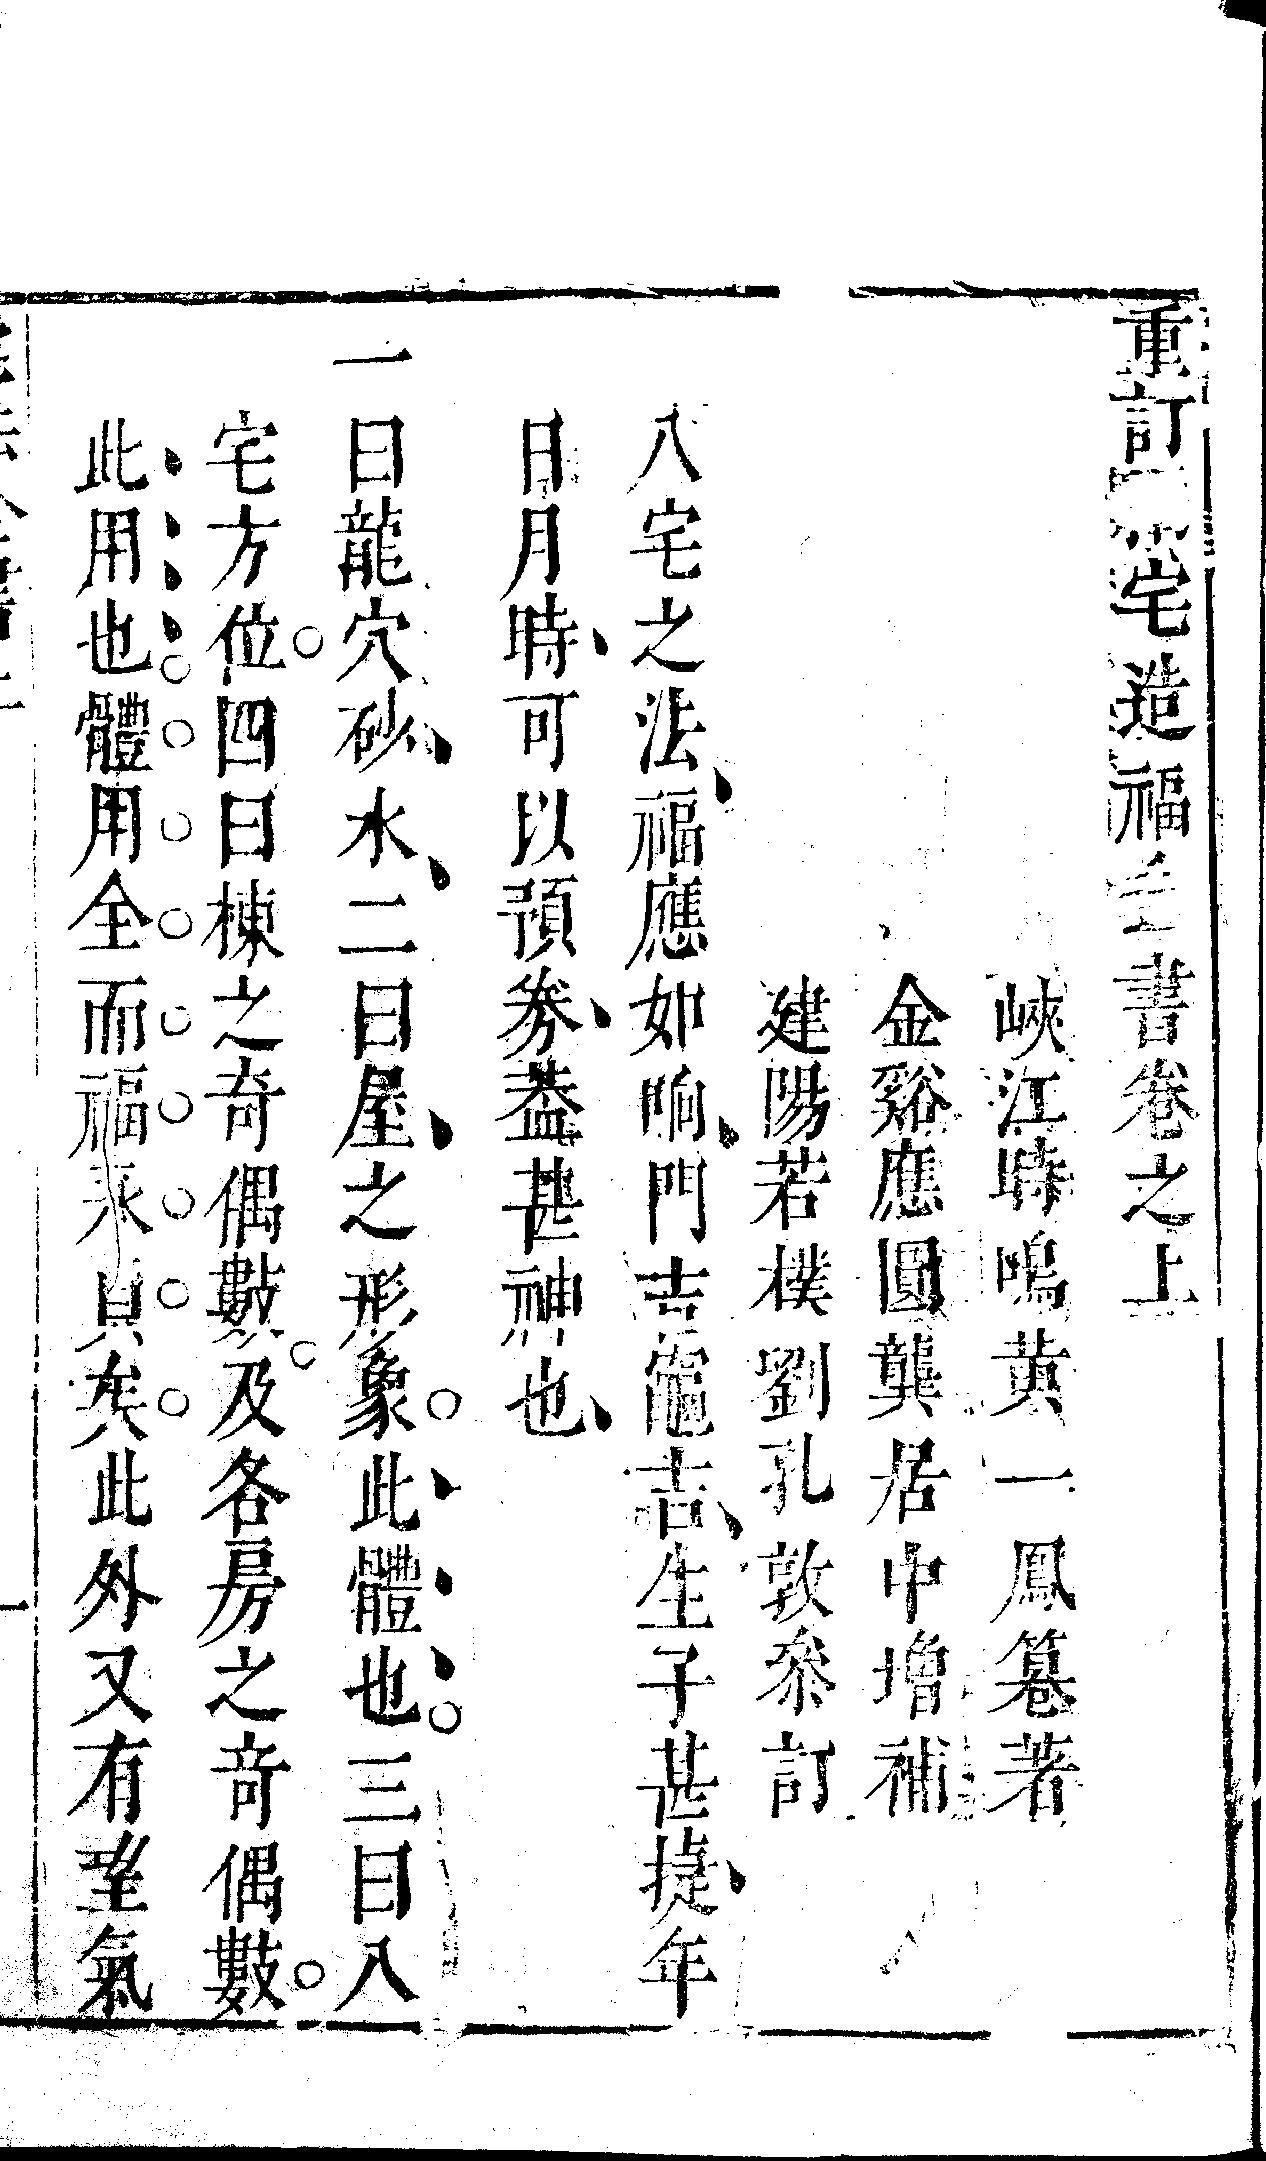 重訂宅造福全書卷之上
峽江時鳴黃一鳳篹著
金谿應圓龔居中增補
建陽若樸劉孔敦叅訂
八宅之法福應如响門吉竈吉生子甚捷年
日月時可以預券葢甚神也
一曰龍穴砂水二曰屋之形象此體也三曰八
宅方位四曰棟之奇偶數及各房之奇偶數
此用也體用全而福永具矣此外又有望氣